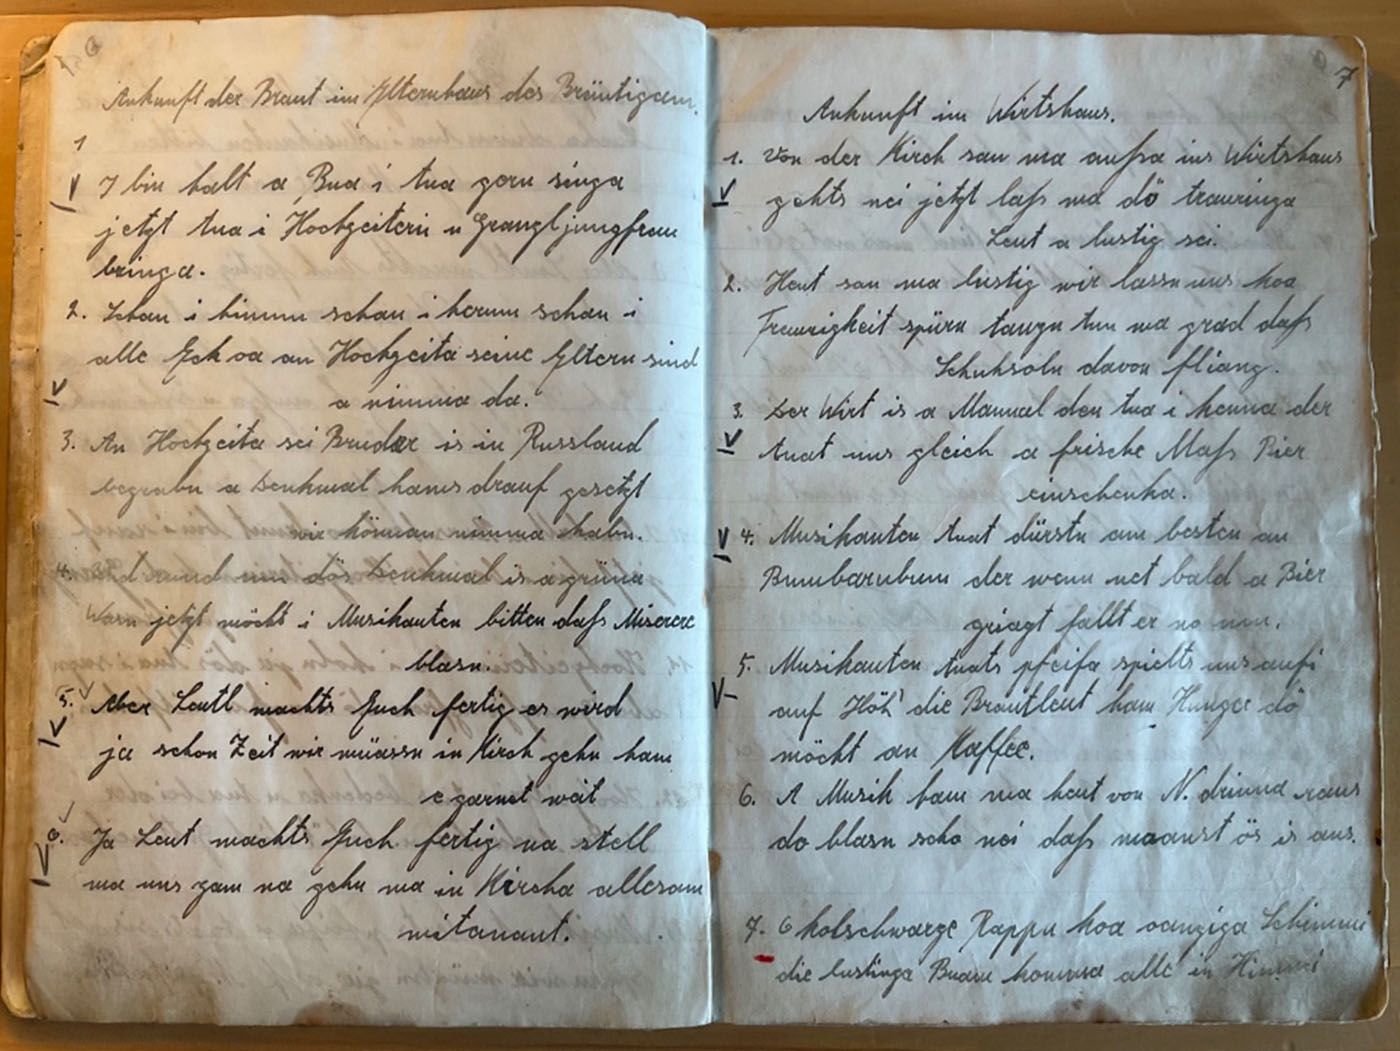 Ankunft der Braut im Elternhaus des Bräutigam.
1
I bin halt a Bua i tua gern singa
jetzt tua i Hochzeiterin u Granzljungfrau
bringa.
2. Schau i hinum schau i herum schau i
alle Eck oa an Hochzeita seine Eltern sind
a nimma da.
3. An Hochzeita sei Bruder is in Russland
begrabn a Denkmal hams drauf gesetzt
wir können nimma habn.
4. Und rund um dös Denkmal is a grüna
Wasn jetzt möcht i Musikanten bitten daß Miserere
blasn.
5. Aber Leutl machts Euch fertig es wird
ja schon Zeit wir müassn in Kirch gehn ham
e garnet weit
6. Ja Leut machts Euch fertig na stell
ma uns zam na gehn ma in Kircha allesam
mitanant.
7
Ankunft im Wirtshaus.
1. Von der Kirch san ma außa ins Wirtshaus
gehts nei jetzt laß ma dö trauringa
Leut a lustig sei.
2. Heut san ma lustig wir lassn uns koa
Traurigkeit spürn tanzn tun ma grad daß
Schuhsoln davon fliang.
3. Der Wirt is a Mannal den tua i kenna der
tuat uns gleich a frische Maß Bier
einschenka.
4. Musikanten tuat dürstn am besten an
Bumbarnbum der wenn net bald a Bier
griagt fallt er no um.
5. Musikanten tuats pfeifa spielts uns aufi
auf Höh' die Brautleut ham Hunger dö
möcht an Kaffee.
6. A Musik ham ma heut von N. drinna raus
do blasn scho nei daß moanst ös is aus.
7. 6 kolschwarze Rappn koa oanziga Schimmi
die lustinga Buam komma alle in Himmi